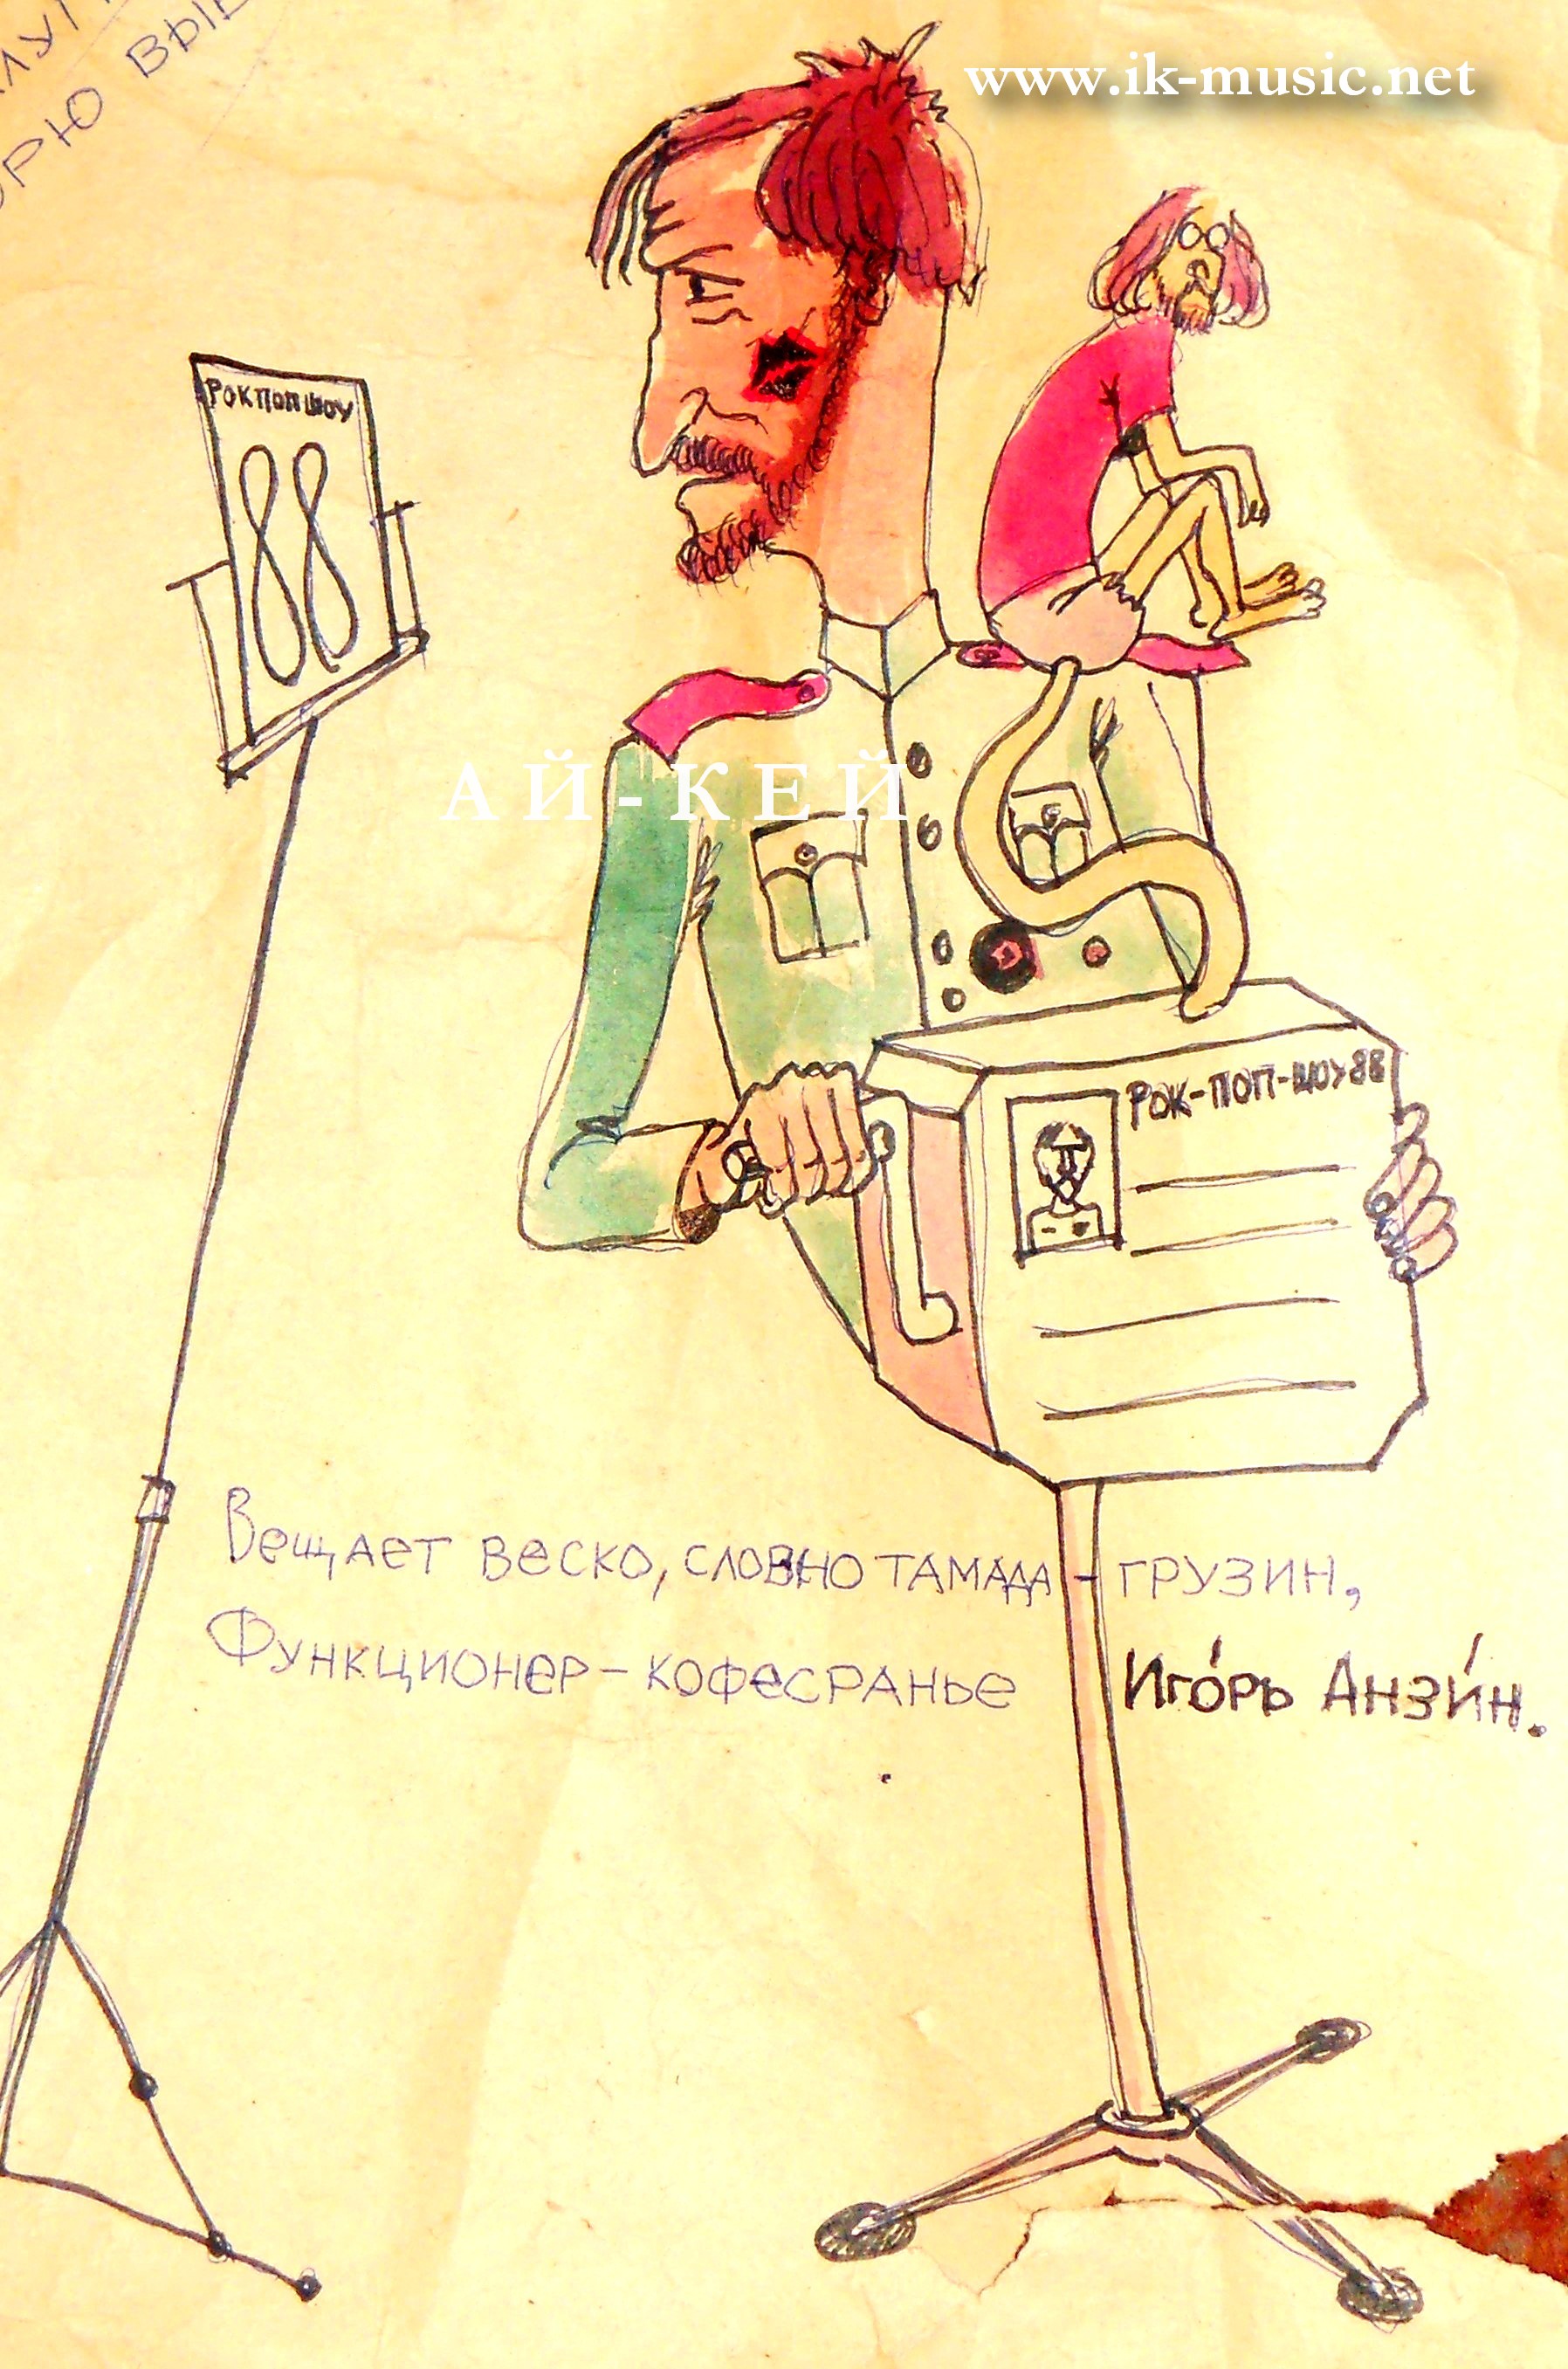 www.ik-music.net
РОК ПОП ШОУ
88
АЙ-КЕЙ
РОК-ПОП-ШОУ 88
Вещает веско, словно тамада - грузин,
Функционер - кофесранье Игóрь Анзи́н.